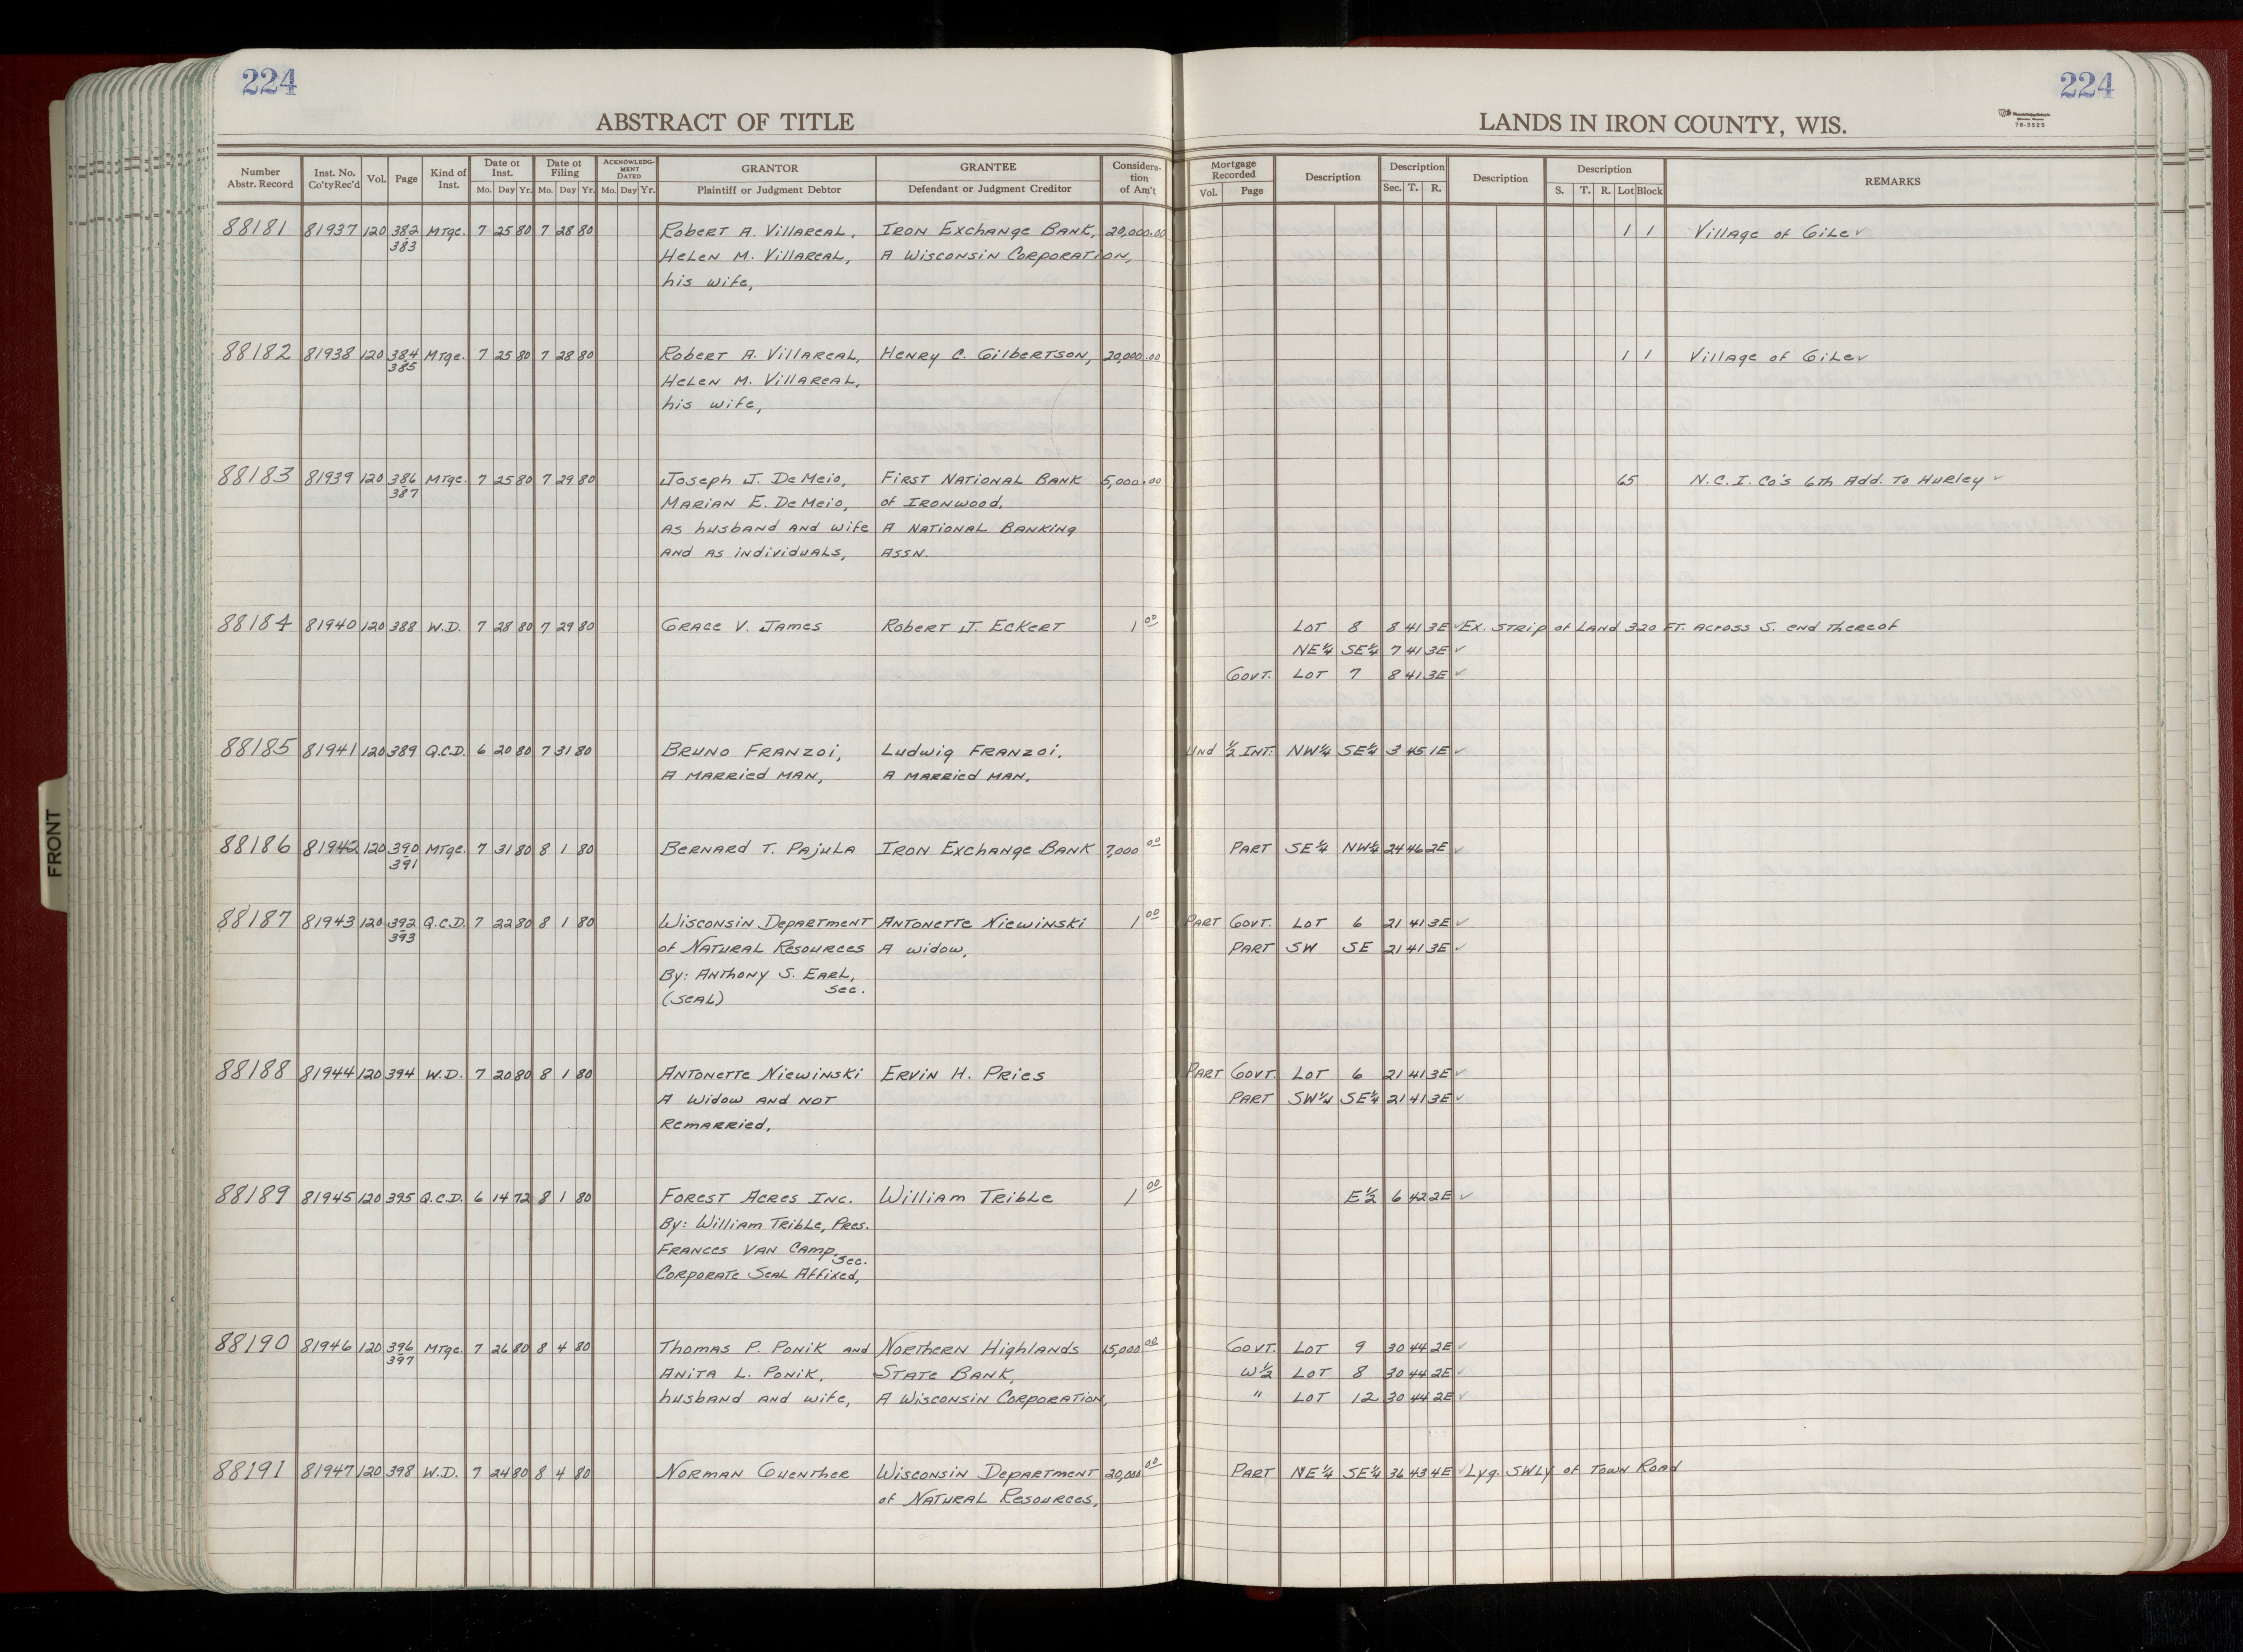 224
224
ABSTRACT OF TITLE
LANDS IN IRON COUNTY, WIS.
78-3525
Number Abstr. Record | Inst. No. Co'ty Rec'd | Vol. | Page | Kind of Inst. | Date of Inst. Mo. Day Yr. | Date of Filing Mo. Day Yr. | ACKNOWLEDGMENT DATED Mo. Day Yr. | GRANTOR Plaintiff or Judgment Debtor | GRANTEE Defendant or Judgment Creditor | Consideration of Am't | Mortgage Recorded Vol. Page | Description | Description Sec. T. R. | Description | Description S. T. R. Lot Block | REMARKS
88181 81937 120 382 Mtge. 7 25 80 7 28 80 Robert A. Villareal, Iron Exchange Bank, 20,000.00 1 1 Village of Gile ✓
383 Helen M. Villareal, A Wisconsin Corporation,
his wife,
88182 81938 120 384 Mtge. 7 25 80 7 28 80 Robert A. Villareal, Henry C. Gilbertson, 20,000.00 1 1 Village of Gile ✓
385 Helen M. Villareal,
his wife,
88183 81939 120 386 Mtge. 7 25 80 7 29 80 Joseph J. DeMeio, First National Bank 5,000.00 65 N.C.I. Co's 6th Add. To Hurley ✓
387 Marian E. DeMeio, of Ironwood,
as husband and wife A National Banking
and as individuals, Assn.
88184 81940 120 388 W.D. 7 28 80 7 29 80 Grace V. James Robert J. Eckert 1 00 Lot 8 8 41 3E ✓ Ex. Strip of Land 320 Ft. Across S. end thereof
NE¼ SE¼ 7 41 3E ✓
Govt. Lot 7 8 41 3E ✓
88185 81941 120 389 Q.C.D. 6 20 80 7 31 80 Bruno Franzoi, Ludwig Franzoi, Und ½ Int: NW¼ SE¼ 3 45 1E ✓
A married man, A married man,
88186 81942 120 390 Mtge. 7 31 80 8 1 80 Bernard T. Pajula Iron Exchange Bank 7,000 00 Part SE¼ NW¼ 24 46 2E ✓
391
88187 81943 120 392 Q.C.D. 7 22 80 8 1 80 Wisconsin Department Antonette Niewinski 1 00 Part Govt. Lot 6 21 41 3E ✓
393 of Natural Resources A widow, Part SW SE 21 41 3E ✓
By: Anthony S. Earl,
Sec.
(Seal)
88188 81944 120 394 W.D. 7 20 80 8 1 80 Antonette Niewinski Ervin H. Pries Part Govt. Lot 6 21 41 3E ✓
A Widow and not Part SW¼ SE¼ 21 41 3E ✓
Remarried,
88189 81945 120 395 Q.C.D. 6 14 72 8 1 80 Forest Acres Inc. William Trible 1 00 E½ 6 42 2E ✓
By: William Trible, Pres.
Frances Van Camp, Sec.
Corporate Seal Affixed,
88190 81946 120 396 Mtge. 7 26 80 8 4 80 Thomas P. Ponik and Northern Highlands 15,000 00 Govt. Lot 9 30 44 2E ✓
397 Anita L. Ponik, State Bank, W½ Lot 8 30 44 2E ✓
husband and wife, A Wisconsin Corporation, " Lot 12 30 44 2E ✓
88191 81947 120 398 W.D. 7 24 80 8 4 80 Norman Guenther Wisconsin Department 20,000 00 Part NE¼ SE¼ 36 43 4E ✓ Lyg. SWLY of Town Road
of Natural Resources,
FRONT